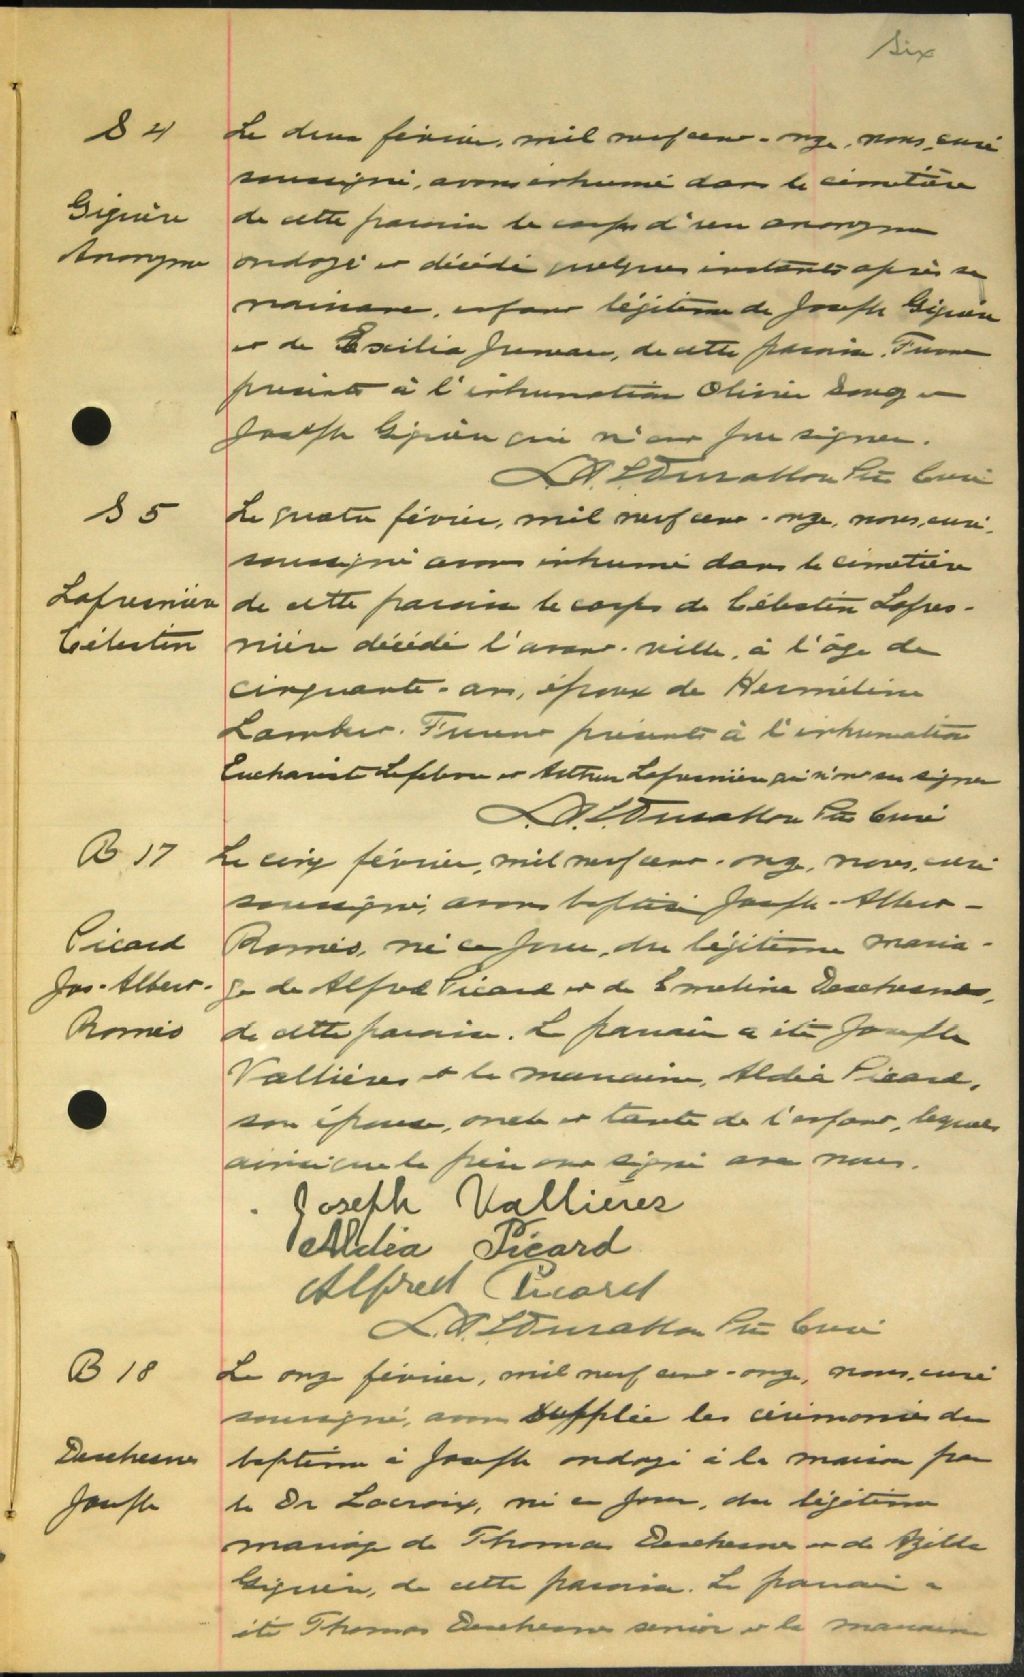 Six
S 4
Giguère
Anonyme
Le deux février, mil neuf cent-onze, nous, curé
soussigné, avons inhumé dans le cimetière
de cette paroisse le corps d'un anonyme
ondoyé et décédé quelques instants après sa
naissance, enfant légitime de Joseph Giguère
et de Exilia Juneau, de cette paroisse. Furent
présents à l'inhumation Olivier et
Joseph Giguère qui n'ont pu signer.
Ptre Curé
S 5
Lafrenière
Célestin
Le quatre février, mil neuf cent-onze, nous, curé,
soussigné avons inhumé dans le cimetière
de cette paroisse le corps de Célestin Lafre-
nière décédé l'avant-veille, à l'âge de
cinquante-ans, époux de Herméline
Lambert. Furent présents à l'inhumation
Eucharist Lefebvre et Arthur Lafrenière qui n'ont su signer
Ptre Curé
B 17
Picard
Jos-Albert-
Roméo
Le cinq février, mil neuf cent-onze, nous, curé
soussigné, avons baptisé Joseph-Albert-
Roméo, né ce jour, du légitime maria-
ge de Alfred Picard et de Emeline Deschesnes,
de cette paroisse. Le parrain a été Joseph
Vallières et la marraine, Aldéa Picard,
son épouse, oncle et tante de l'enfant, lesquels
ainsi que le père ont signé avec nous.
Joseph Vallières
Aldéa Picard
Alfred Picard
Ptre Curé
B 18
Deschesnes
Joseph
Le onze février, mil neuf cent-onze, nous, curé
soussigné, avons supplée les cérémonies du
baptême à Joseph ondoyé à la maison par
le Dr Lacroix, né ce jour, du légitime
mariage de Thomas Deschesnes et de Azilda
Giguère, de cette paroisse. Le parrain a
été Thomas Deschesnes senior et la marraine